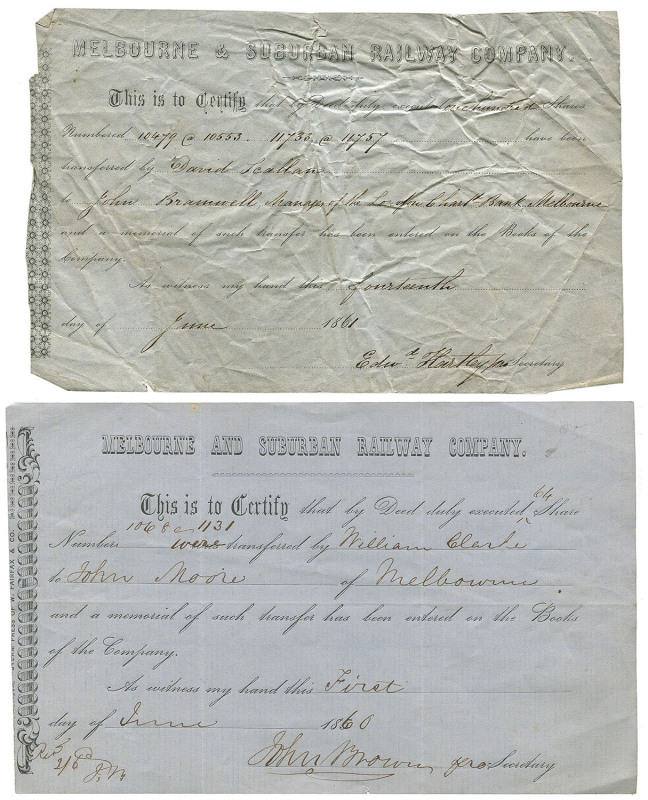 MELBOURNE & SUBURBAN RAILWAY COMPANY.
This is to Certify that by Deed duly executed one hundred Shares
Numbered 10479 @ 10553. 11733 @ 11757 have been
transferred by David
to John Bramwell Manager of the Chartd Bank Melbourne
and a memorial of such transfer has been entered on the Books of the
Company.
As witness my hand this fourteenth
day of June 1861
Edwd Hartley pro Secretary
MELBOURNE AND SUBURBAN RAILWAY COMPANY.
This is to Certify that by Deed duly executed 64 Share
Number 1068 @ 1131 were transferred by William Clarke
to John Moore of Melbourne
and a memorial of such transfer has been entered on the Books
of the Company.
As witness my hand this First
day of June 1860
John Brown pro Secretary
2/6
FAIRFAX & CO.